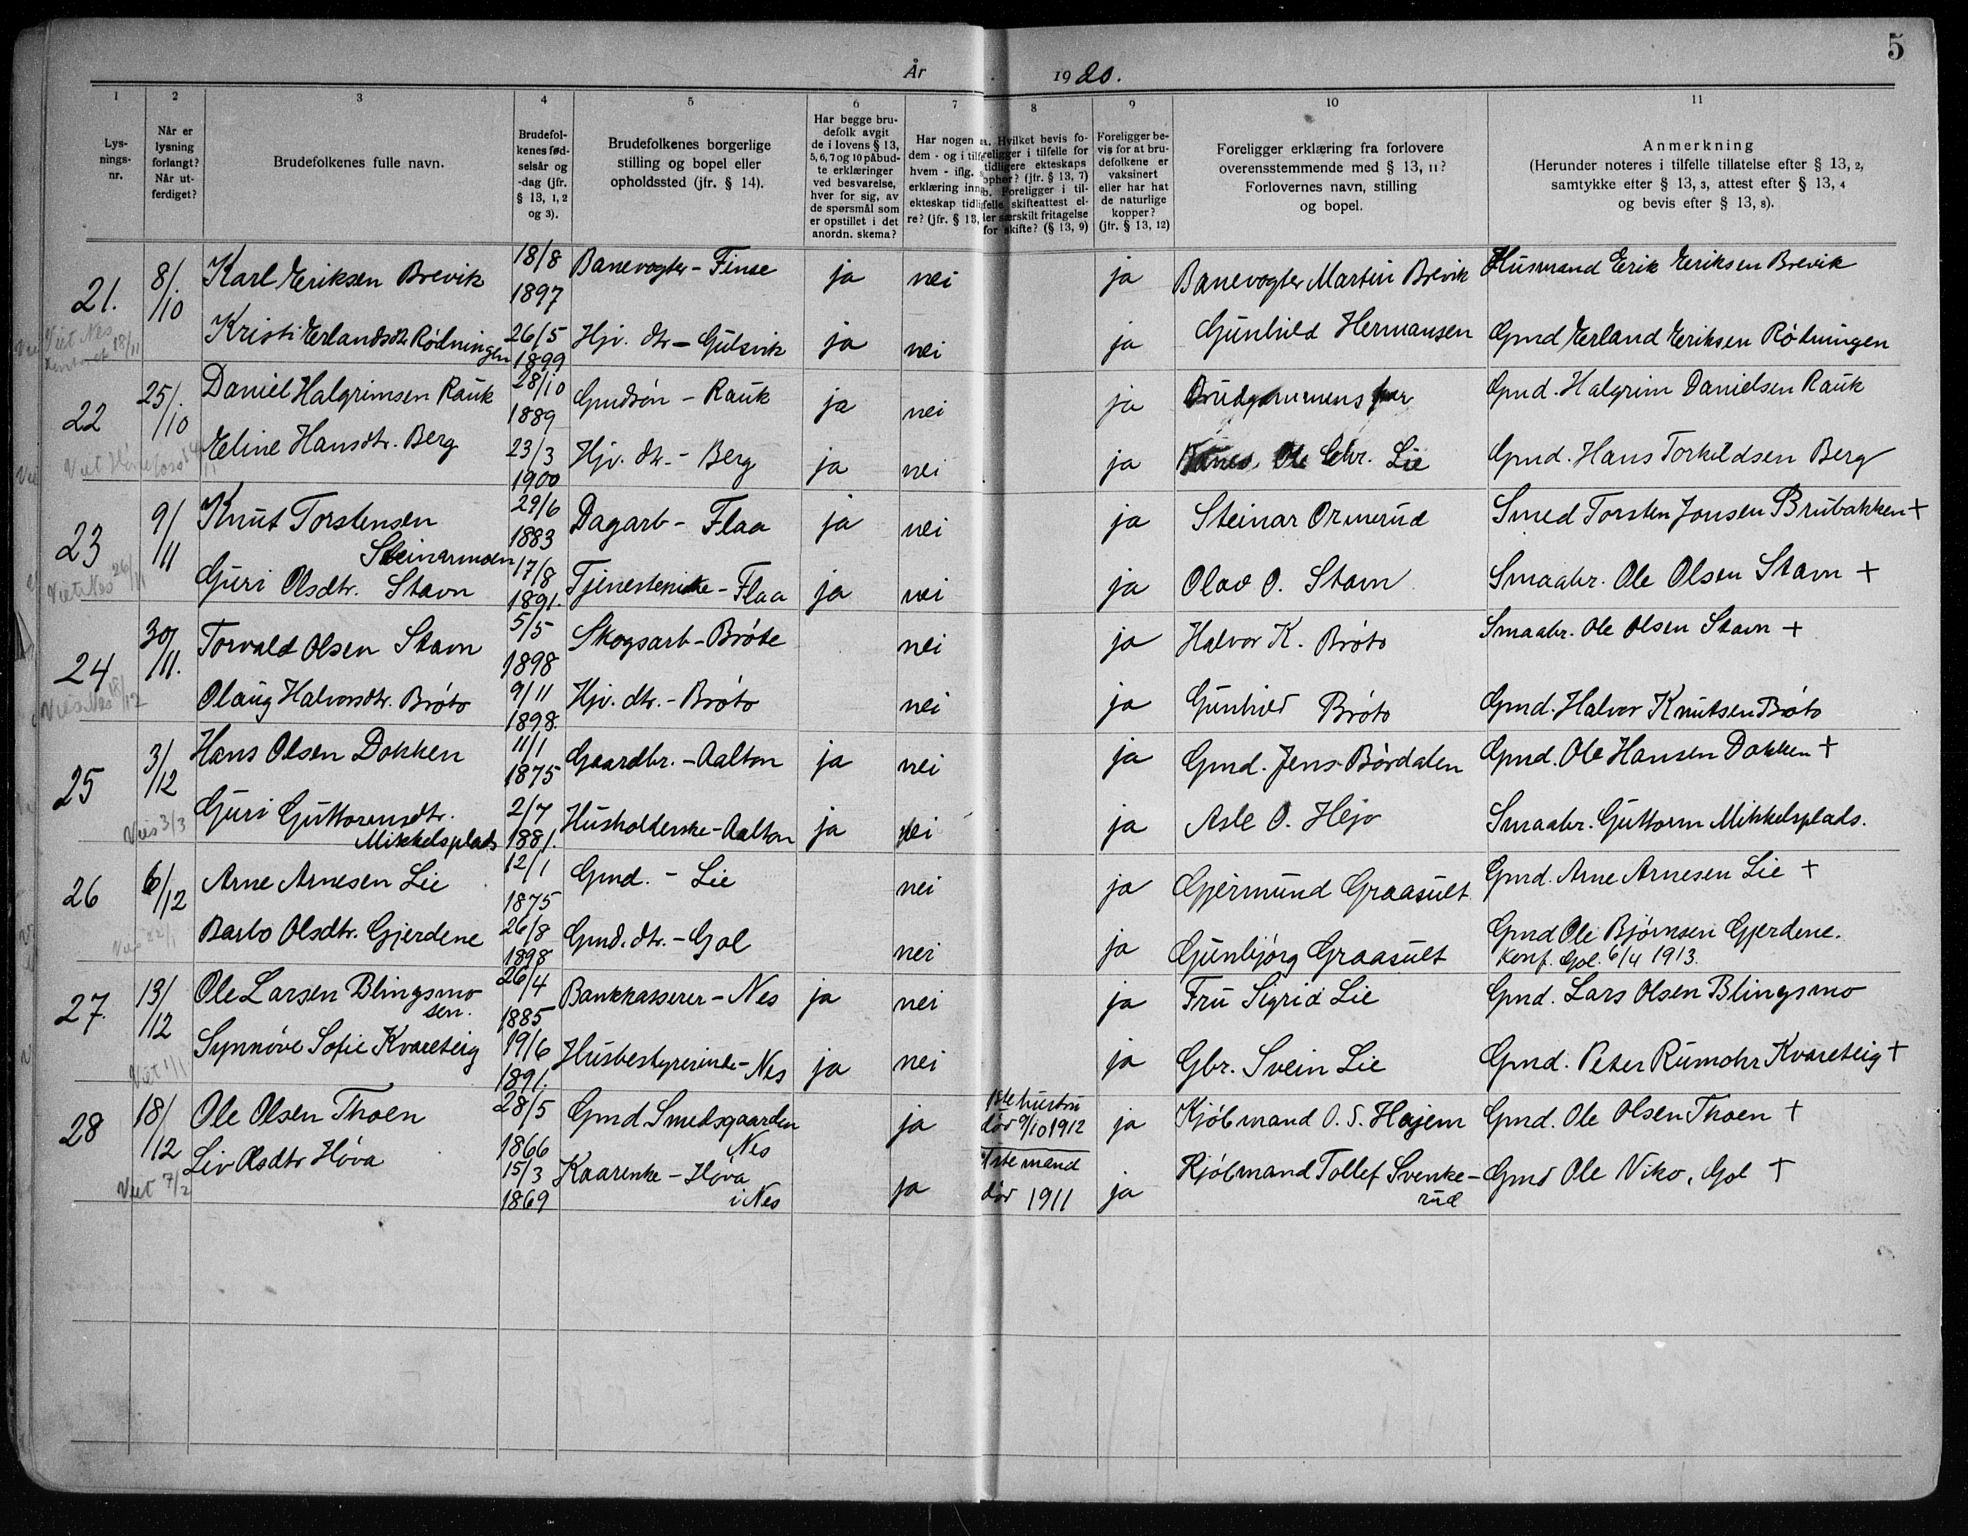 5
År 1920.
1 2 3 4 5 6 7 8 9 10 11
Lysningsnr.
Når er lysning forlangt? Når utferdiget?
Brudefolkenes fulle navn.
Brudefolkenes fødselsår og -dag (jfr. § 13, 1, 2 og 3).
Brudefolkenes borgerlige stilling og bopel eller opholdssted (jfr. § 14).
Har begge brudefolk avgit de i lovens § 13, 5, 6, 7 og 10 påbudte erklæringer ved besvarelse, hver for sig, av de spørsmål som er opstillet i det anordn. skema?
Har nogen dem - og i tilf hvem - iflg. erklæring inng ekteskap tidli re? (jfr. § 13,
a. Hvilket bevis foreligger i tilfelle for tidligere ekteskaps ophør? (jfr. § 13, 7) b. Foreligger i tilfelle skifteattest eller særskilt fritagelse for skifte? (§ 13, 9)
Foreligger bevis for at brudefolkene er vaksinert eller har hat de naturlige kopper? (jfr. § 13, 12)
Foreligger erklæring fra forlovere overensstemmende med § 13, 11? Forlovernes navn, stilling og bopel.
Anmerkning (Herunder noteres i tilfelle tillatelse efter § 13, 2, samtykke efter § 13, 3, attest efter § 13, 4 og bevis efter § 13, 8).
21. 8/10 Karl Eriksen Brevik 18/8 1897 Banevogter - Finse ja nei ja Banevogter Martin Brevik Husmand Erik Eriksen Brevik
Viet Nes 18/11 Kristi Erlandsdtr Rødningen 26/5 1899 Hjv. dtr - Gulsvik ja nei ja Gunhild Hermansen Gmd Erland Eriksen Rødningen
22 25/10 Daniel Halgrimsen Rauk 28/10 1889 Gmdsøn - Rauk ja nei ja Brudgommens far Gmd. Halgrim Danielsen Rauk
Viet Hønefoss Eline Hansdtr. Berg 23/3 1900 Hjv. dtr. - Berg ja nei ja Ole Chr. Lie Gmd. Hans Torkildsen Berg
23 9/11 Knut Torstensen Steinarmoen 29/6 1883 Dagarb - Flaa ja nei ja Steinar Ormerud Smed Torsten Jonsen Brubakken +
Viet Nes 26/11 Guri Olsdtr. Stavn 17/8 1891. Tjenestepike - Flaa ja nei ja Olav O. Stavn Smaabr. Ole Olsen Stavn +
24 30/11. Torvald Olsen Stavn 5/5 1898 Skogsarb - Brøte nei ja Halvor K. Brøto Smaabr. Ole Olsen Stavn +
Vies Nes 18/12 Olaug Halvorsdtr. Brøto 9/11 1898. Hjv. dtr. - Brøto nei ja Gunhild Brøto Gmd. Halvor Knutsen Brøto
25 3/12 Hans Olsen Dokken 11/1 1875 Gaardbr. - Aalton ja nei ja Gmd. Jens Børdalen Gmd. Ole Hansen Dokken +
Vies 3/3 Guri Guttormsdtr. Mikkelsplads 2/7 1881. Husholderske - Aalton ja nei ja Asle O. Hejo Smaabr. Guttorm Mikkelsplads.
26 6/12 Arne Arnesen Lie 12/1 1875 Gmd. - Lie nei ja Gjermund Graasult Gmd. Arne Arnesen Lie +
Vies 22/1 Barbo Olsdtr. Gjerdene 26/8 1898 Gmd. dtr. - Gol nei ja Gunbjørg Graasult Gmd Ole Bjørnsen Gjerdene. Konf. Gol. 6/4 1913.
27. 13/12 Ole Larsen Blingsmo sen. 26/4 1885 Bankkasserer - Nes ja nei ja Fru Sigrid Lie Gmd. Lars Olsen Blingsmo
Viet 1/1 Synnøve Sofie Kvareteig 19/6 1891. Husbestyrerinde - Nes ja nei ja Gbr. Svein Lie Gmd. Peter Rumohr Kvareteig +
28 18/12 Ole Olsen Thoen 28/5 1866 Gmd. Smedsgaarden Nes ja 1ste hustru dør 9/10 1912 ja Kjøbmand O. S. Hajem Gmd. Ole Olsen Thoen +
Viet 7/2 Liv Olsdtr Hova 15/3 1869 Kaarenke - Hova i Nes ja 1ste mand dør 1911 ja Kjøbmand Tollef Svenkerud Gmd Ole Niko, Gol +